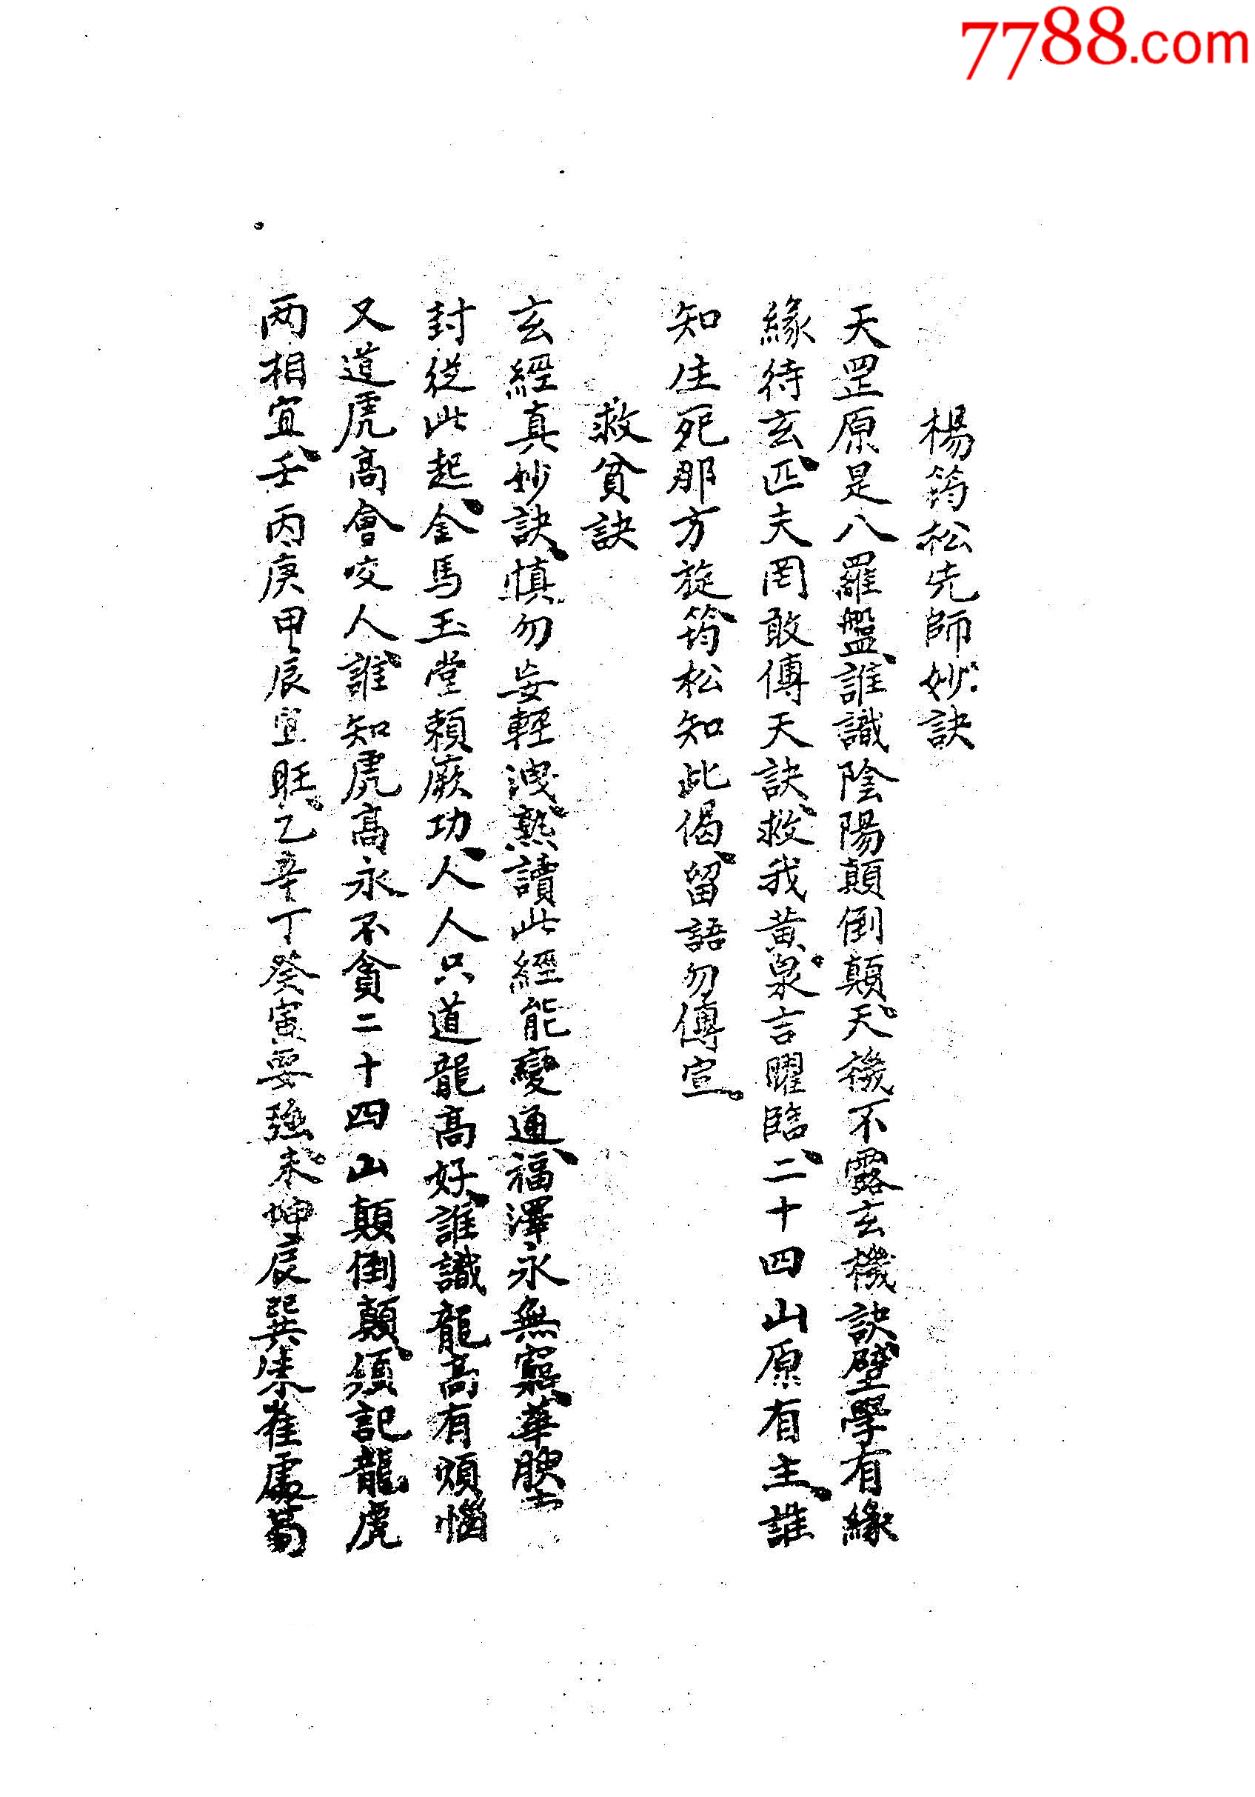 7788.com
楊筠松先師妙訣
天罡原是八羅盤、誰識陰陽顛倒顛、天機不露玄機訣、壁學有緣
緣待玄、匹夫罔敢傳天訣、救我黃泉言曜臨、二十四山原有主、誰
知生死那方旋、筠松知此偈、留語勿傳宣。
救貧訣
玄經真妙訣、慎勿妄輕洩、熟讀此經能變通、福澤永無窮、華腴
封從此起、金馬玉堂賴厥功、人人只道龍高好、誰識龍高有煩惱
又道虎高會咬人、誰知虎高永不貪二十四山顛倒顛、須記龍虎
两相宜、壬丙庚甲辰宜旺、乙辛丁癸寅要強、未坤辰巽朱雀處